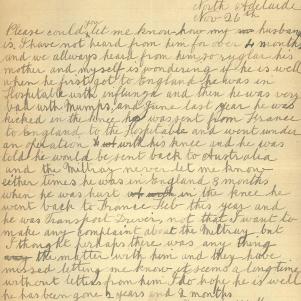 North Adelaide
Nov 26th
Please could you let me know how my husband
is, I have not heard from him for over 4 months
and we allways heard from him so reglar his
mother and myself is wondering if he is well
when he first got to England he was in
Hospitable with influnza and then he was very
bad with Mumps, and June last year he was
kicked in the knee he was sent from France
to England to the Hospitable and went under
an operation with his knee and he was
told he would be sent back to Australia
and the Miltray never let me know
either times he was in England 8 months
when he was hurt on the knee he
went back to France Feb this year and
he was Transport Driver, not that I want to
make any complaint about the Miltray but
I thought perhaps there was any thing
the matter with him and they have
missed letting me know it seems a long time
without letters from him I do hope he is well
he has been gone 2 years and 2 months